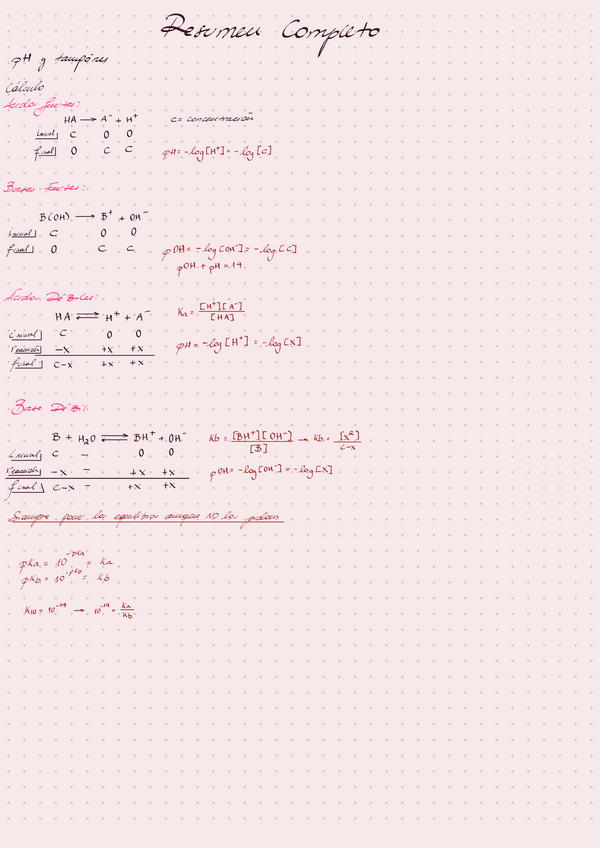 Resumen Completo
pH y tampónes
Cálculo
Ácido fuertes:
HA → A⁻ + H⁺ C = concentración
inicial C 0 0
final 0 C C pH = -log[H⁺] = -log[C]
Bases Fuertes:
B(OH) → B⁺ + OH⁻
inicial C 0 0
final 0 C C pOH = -log[OH⁻] = -log[C]
pOH + pH = 14
Ácido Débiles:
HA ⇌ H⁺ + A⁻ Ka = [H⁺][A⁻] / [HA]
inicial C 0 0
reacción -x +x +x pH = -log[H⁺] = -log[x]
final C-x +x +x
Base Débil
B + H₂O ⇌ BH⁺ + OH⁻ Kb = [BH⁺][OH⁻] / [B] → Kb = [x²] / C-x
inicial C - 0 0
reacción -x - +x +x pOH = -log[OH⁻] = -log[x]
final C-x - +x +x
Siempre poner los equilibrio aunque NO los pidan
pKa = 10⁻ᵖᴷᵃ = Ka
pKb = 10⁻ᵖᴷᵇ = Kb
Kw = 10⁻¹⁴ → 10⁻¹⁴ = Ka / Kb